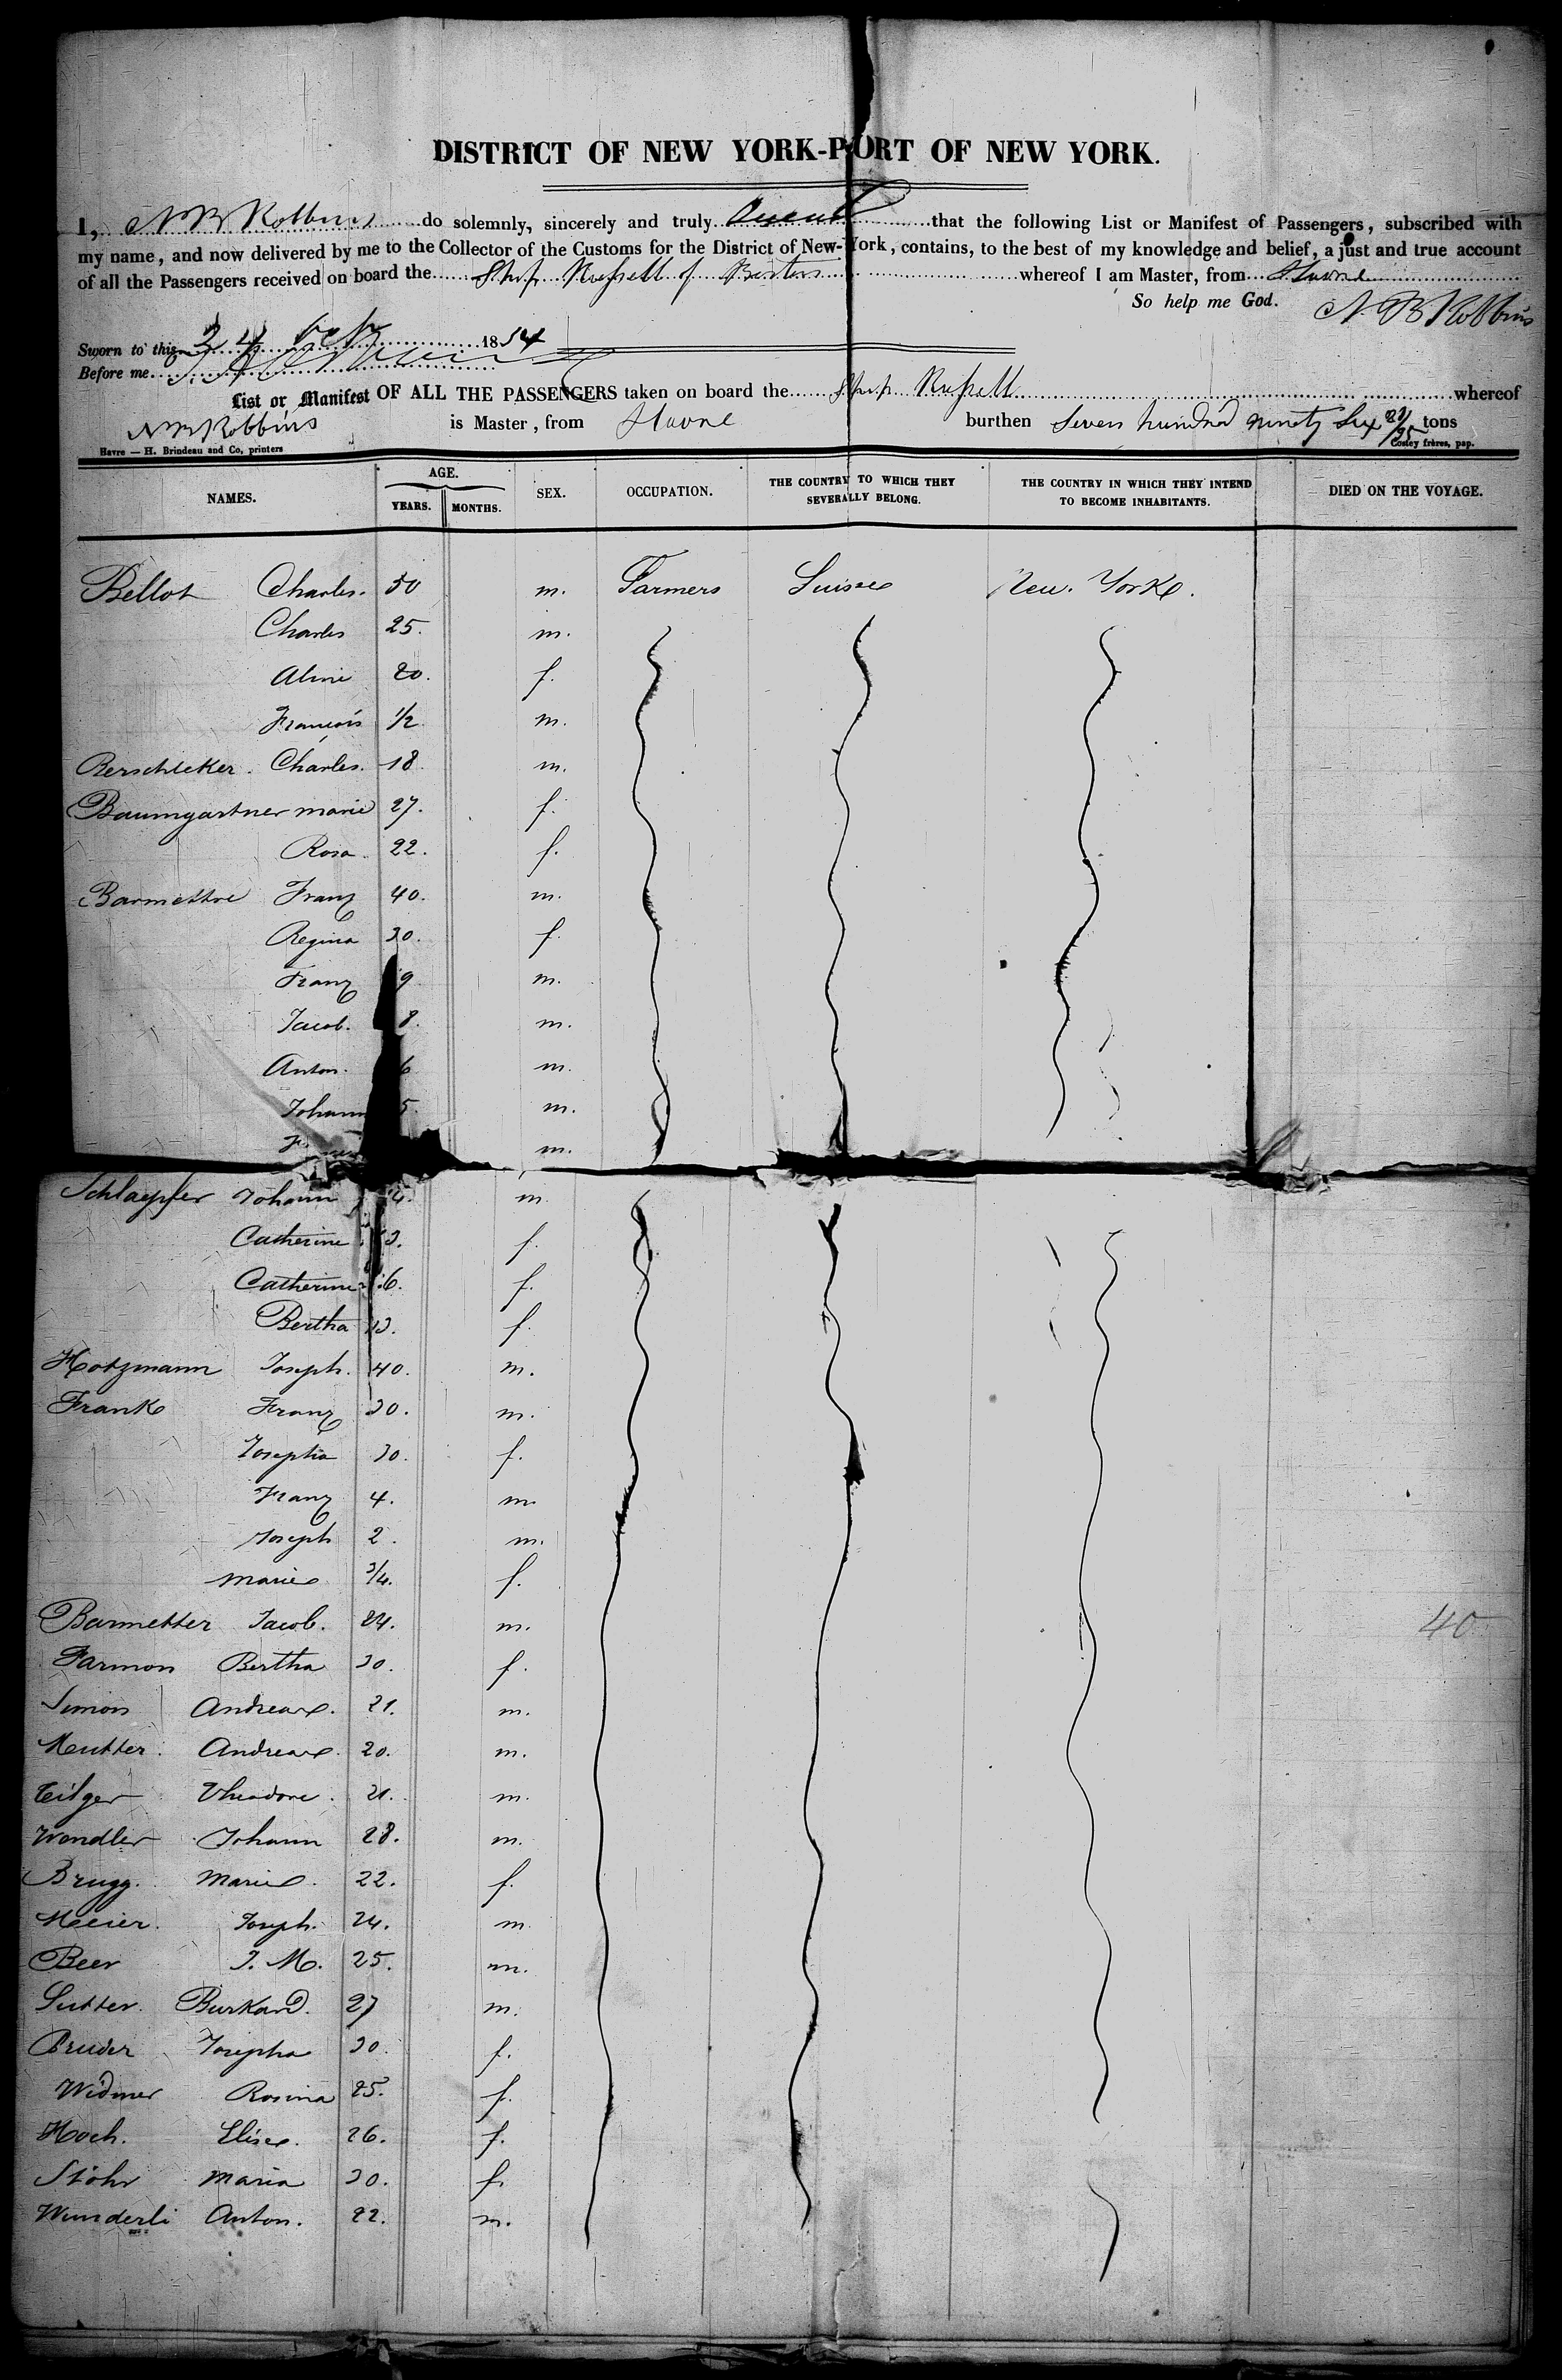 DISTRICT OF NEW YORK-PORT OF NEW YORK.
I, N B Robbins do solemnly, sincerely and truly that the following List or Manifest of Passengers, subscribed with
my name, and now delivered by me to the Collector of the Customs for the District of New-York, contains, to the best of my knowledge and belief, a just and true account
of all the Passengers received on board the Ship Russell of Boston whereof I am Master, from Havre
So help me God. N. B Robbins
Sworn to this 24 1854
Before me
List or Manifest OF ALL THE PASSENGERS taken on board the Ship Russell whereof
N B Robbins is Master, from Havre burthen Seven hundred ninety Six tons
Havre — H. Brindeau and Co, printers Costey frères, pap.
NAMES. AGE. YEARS. MONTHS. SEX. OCCUPATION. THE COUNTRY TO WHICH THEY SEVERALLY BELONG. THE COUNTRY IN WHICH THEY INTEND TO BECOME INHABITANTS. DIED ON THE VOYAGE.
Bellot Charles. 50 m. Farmers Suisse New. Yorke.
Charles 25. m.
Aline 20. f.
François 1/2 m.
Berschteker. Charles. 18 m.
Baumgartner marie 27. f.
Rosa. 22. f.
Barmettre Franz 40. m.
Regina 30. f.
Franz 9 m.
Jacob. 8. m.
Anton. 6 m.
Johann 5. m.
m.
Schlaepfer Johann 4. m.
Catherine 3. f.
Catherine 6. f.
Bertha 13. f.
Hotzmann Joseph. 40. m.
Franke Franz 30. m.
Josepha 30. f.
Franz 4. m.
Joseph 2. m.
marie 3/4. f.
Barmetter Jacob. 24. m.
Farmon Bertha 30. f.
Simon Andreare. 21. m.
Meutter. Andreare. 20. m.
Eilger Theodore. 21. m.
Wendler Johann 28. m.
Brugg. Marie. 22. f.
Meeier. Joseph. 24. m
Beer J. M. 25. m.
Sutter. Burkard. 27 m.
Bruder Josepha 30. f.
Widmer Rosina 25. f.
Hoch. Elise. 26. f.
Stöhr Maria 30. f.
Wunderli Anton. 22. m.
40